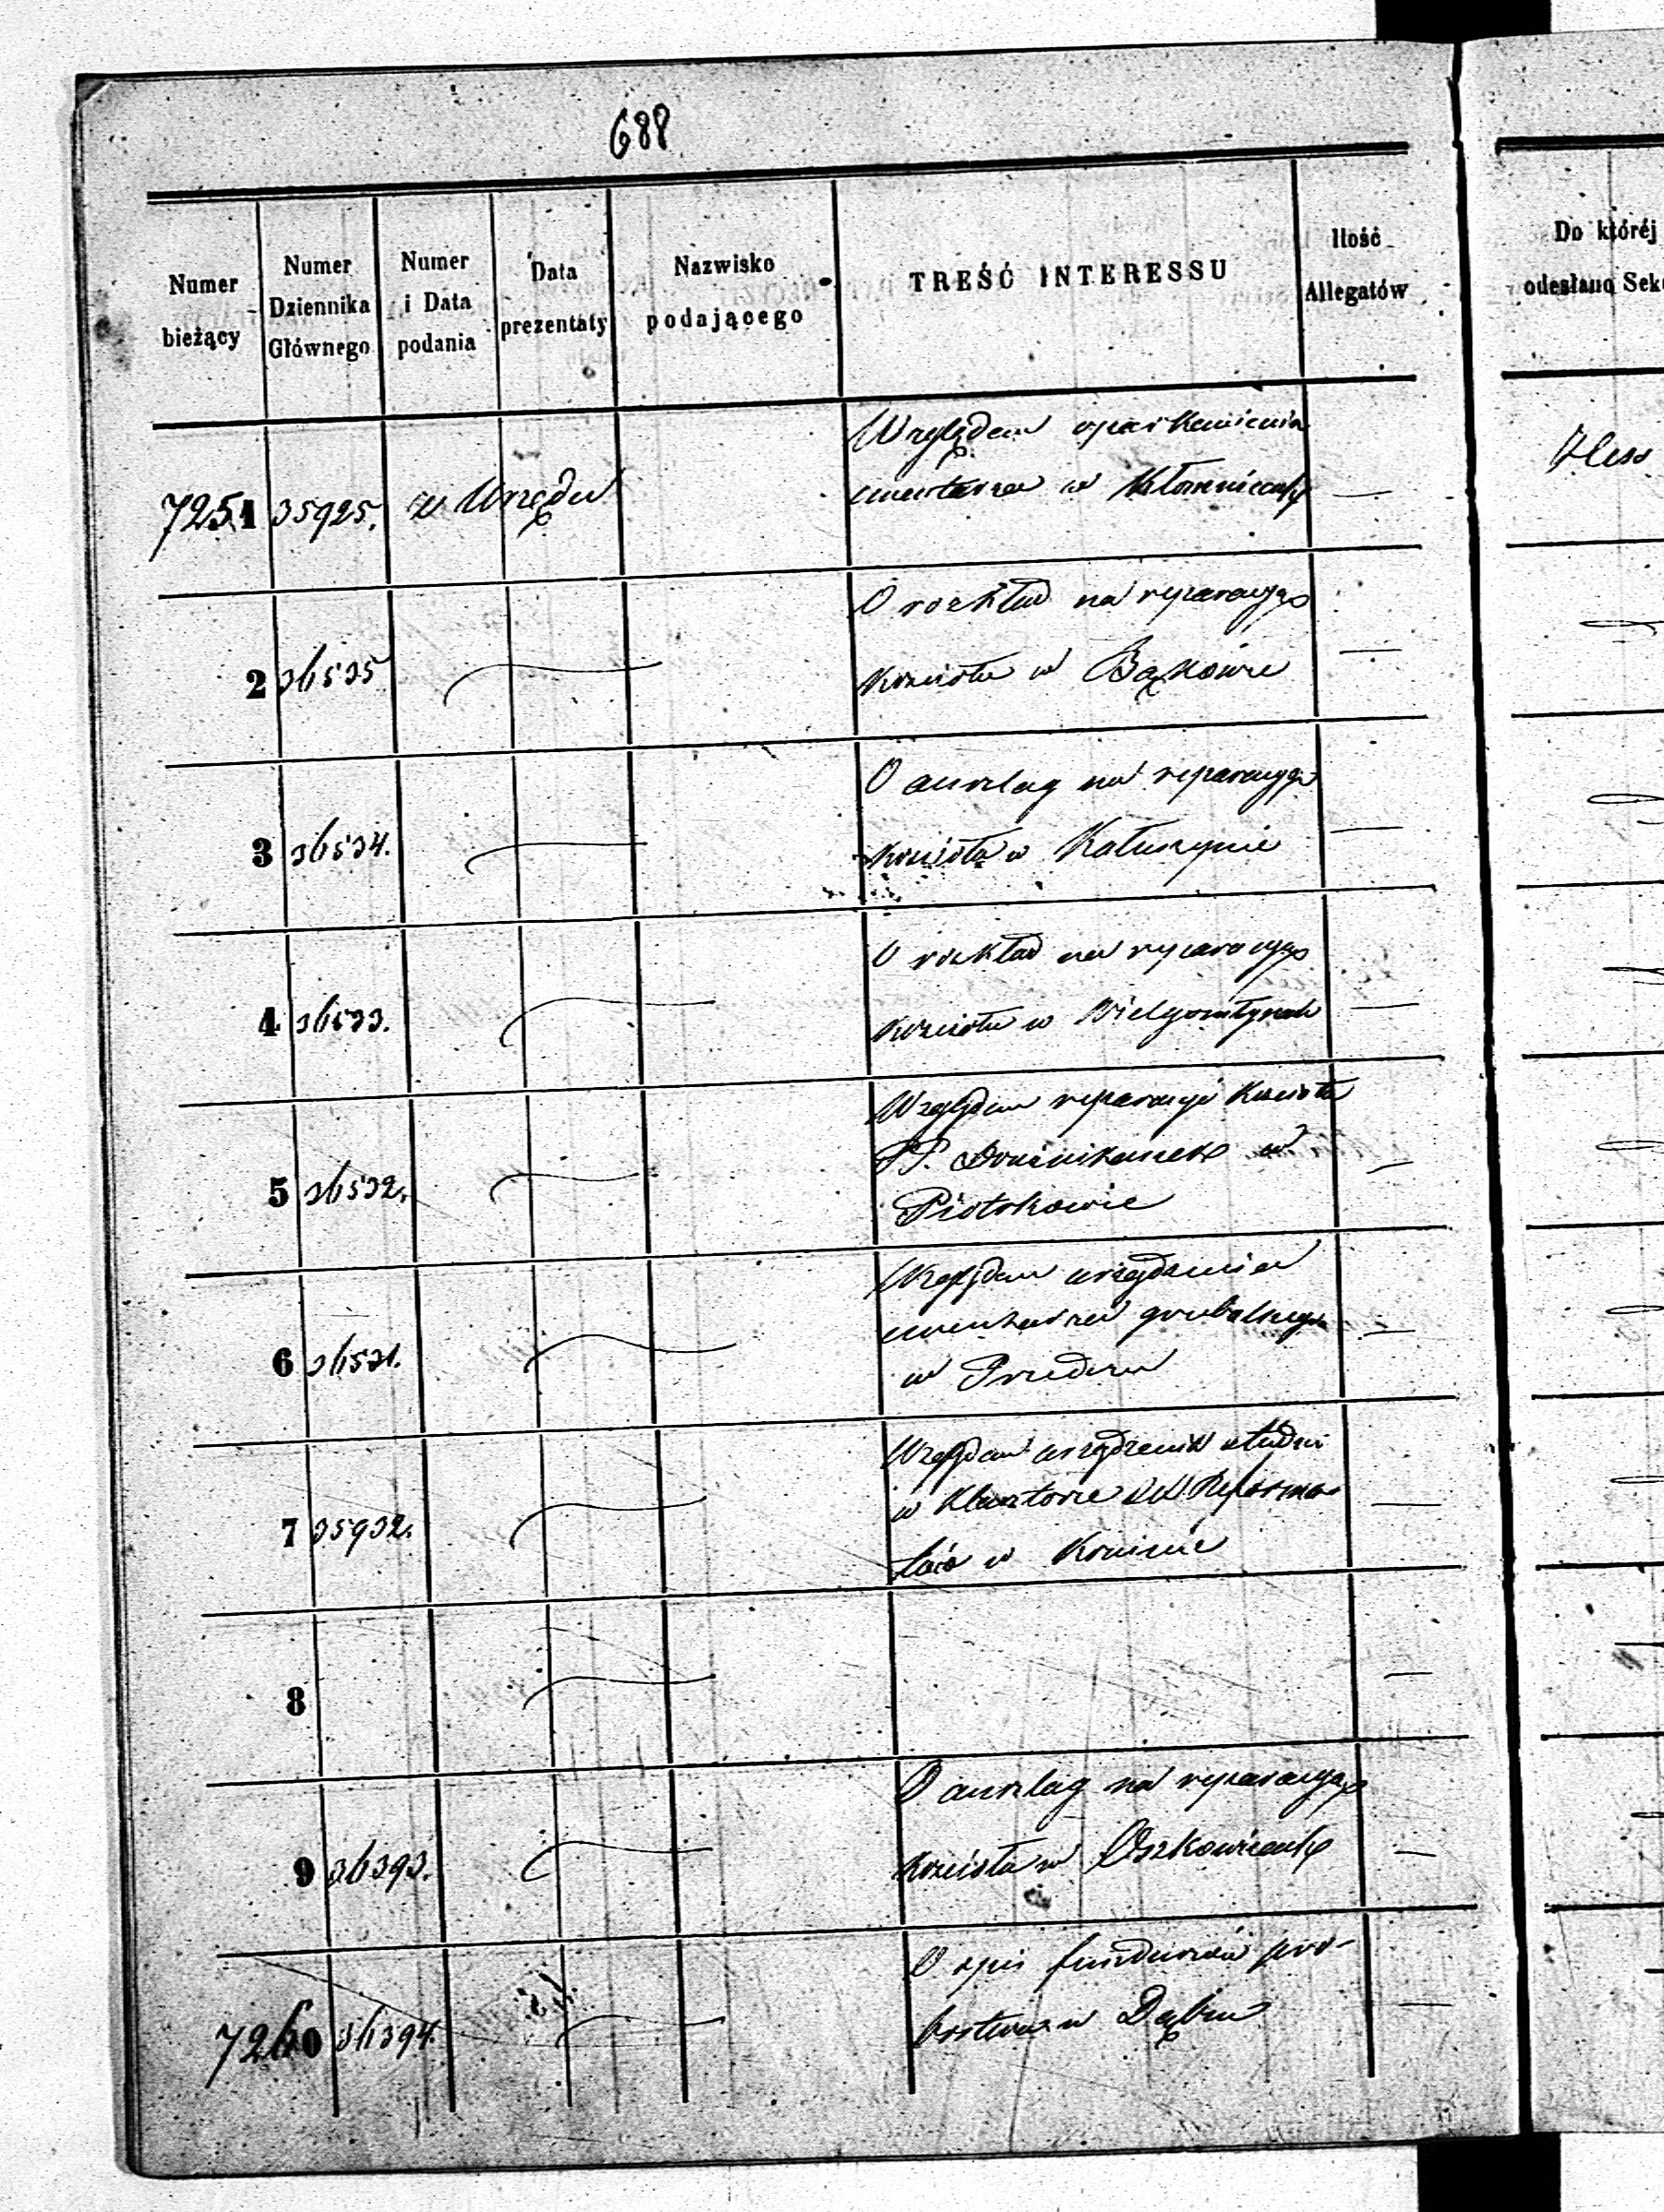 688
Numer bieżący
Numer Dziennika Głównego
Numer i Data podania
Data prezentaty
Nazwisko podającego
TREŚĆ INTERESSU
Ilość Allegatów
Do któréj
odesłano Sek
7251 35925. z Urzędu Względem oparkanienia
cmentarza w Kłomnicach —
2 36535 O rozkład na reparacyą
Kościoła w Bąkowie —
3 36534. O anszlag na reparacyą
Kościoła w Kałuszynie —
4 36533. O rozkład na reparacyą
Kościoła w Wielgomłynach —
5 36532. Względem reparacyi Kościoła
PP. Dominikanek w
Piotrkowie —
6 36531. Względem urządzenia
cmentarza grzebalnego
w Przedczu —
7 35932. Względem urządzenia studni
w Klasztorze XX Reforma-
tów w Koninie —
8 —
9 36393. O anszlag na reparacyą
Kościoła w Oszkowicach —
7260 36394. O opis funduszów pro-
bostwa w Dąbiu —